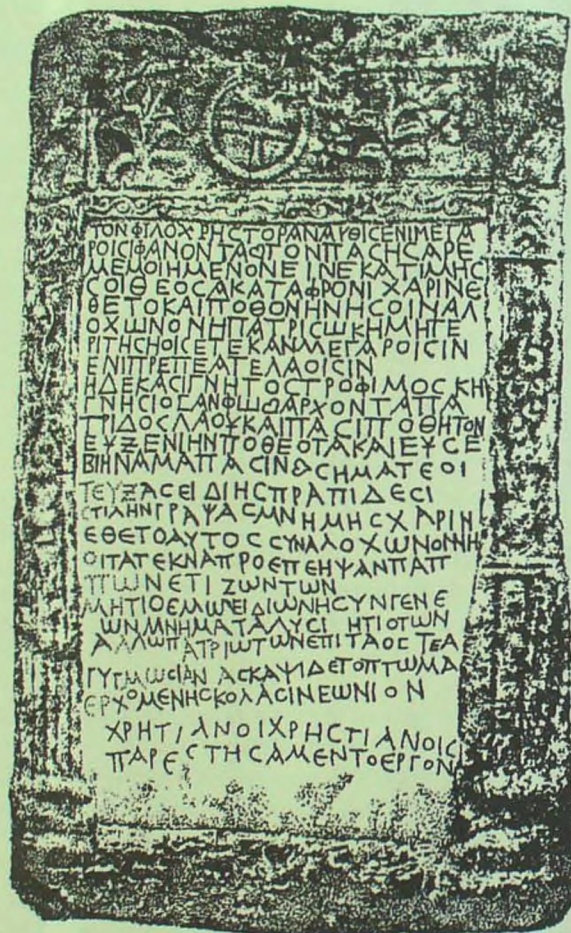 ΤΟΝΦΙΛΟΧΡΗϹΤΟΡΑΝΑΥΘΙϹΕΝΙΜΕΓΑ
ΡΟΙϹΙΦΑΝΟΝΤΑϹΤΟΝΠΑϹΗϹΑΡΕ
ΜΕΜΟΙΗΜΕΝΟΝΕΙΝΕΚΑΤΙΜΗϹ
ϹΟΙΘΕΟϹΑΚΑΤΑΦΡΟΝΙΧΑΡΙΝΕ
ΘΕΤΟΚΑΙΠΟΘΟΝΗΝΗϹΟΙΝΑΛ
ΟΧΩΝΟΝΗΠΑΤΡΙϹΩΚΗΜΗΤΕ
ΡΙΤΗϹΗΟΙϹΕΤΕΚΑΝΜΕΓΑΡΟΙϹΙΝ
ΕΝΙΠΡΕΠΕΑΤΕΛΑΟΙϹΙΝ
ΗΔΕΚΑϹΙΓΝΗΤΟϹΤΡΟΦΙΜΟϹΚΗ
ΓΝΗϹΙΟϹΑΝΦΩΔΑΡΧΟΝΤΑΠΑ
ΤΡΙΔΟϹΛΑΟΥΚΑΙΠΑϹΙΠΟΘΗΤΟΝ
ΕΥΞΕΝΙΗΝΠΟΘΕΟΤΑΚΑΙΕΥϹΕ
ΒΙΗΝΑΜΑΠΑϹΙΝ&ϹΗΜΑΤΕΟΙ
ΤΕΥΞΑϹΕΙΔΙΗϹΠΡΑΠΙΔΕϹΙ
ϹΤΙΛΗΝΓΡΑΨΑϹΜΝΗΜΗϹΧΑΡΙΝ
ΕΘΕΤΟΑΥΤΟϹϹΥΝΑΛΟΧΩΝΟΝΝΗ
ΟΙΤΑΤΕΚΝΑΠΡΟΕΠΕΗΨΑΝΠΑΠ
ΠΩΝΕΤΙΖΩΝΤΩΝ
ΜΗΤΙΟΕΜΩΕΙΔΙΩΝΗϹΥΝΓΕΝΕ
ΩΝΜΝΗΜΑΤΑΛΥϹΙ ΗΤΙΟΤΩΝ
ΑΛΛΩΠΑΤΡΙΩΤΩΝΕΠΙΤΑΟϹΤΕΑ
ΓΥΓΜΩϹΙΑΝ ΑϹΚΑΨΙΔΕΤΟΠΤΩΜΑ
ΕΡΧΟΜΕΝΗϹΚΟΛΑϹΙΝΕΩΝΙΟΝ
ΧΡΗΤΙΑΝΟΙΧΡΗϹΤΙΑΝΟΙϹ
ΠΑΡΕϹΤΗϹΑΜΕΝΤΟΕΡΓΟΝ